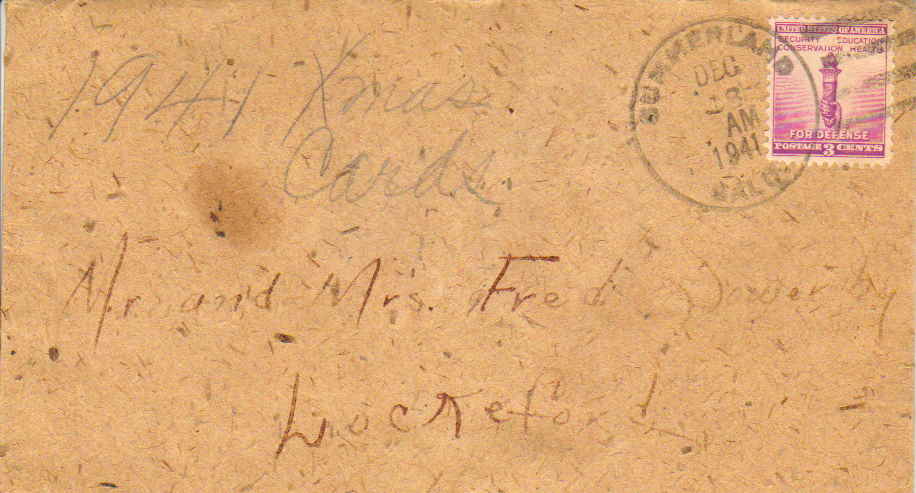 1941 Xmas
Cards
SUMMERLAND
DEC
AM
1941
CALIF
UNITED STATES OF AMERICA
SECURITY EDUCATION
CONSERVATION HEALTH
FOR DEFENSE
POSTAGE 3 CENTS
Mr. and Mrs. Fred
Lockeford